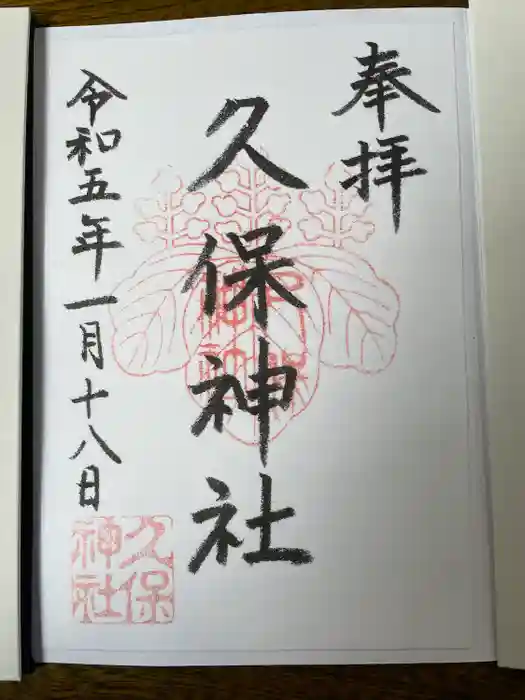 奉拝
久保神社
令和五年一月十八日
久保
神社
久保
神社